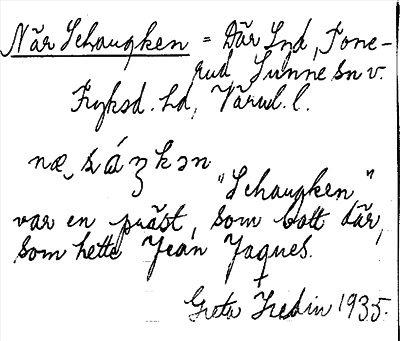 När Schaugken = Där Snd, Tone-
rud, Sunne sn v.
Fryksd. hd, Värml. l.
næ, śáʒkən
"Schaugken"
var en präst, som bott där,
som hette Jean Jaques.
†
Greta Hedin 1935.